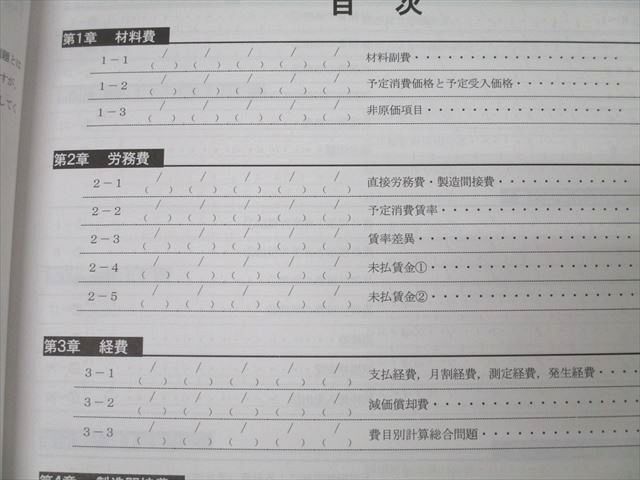 目 次
第1章 材料費
1－1 / / / / / ( ) ( ) ( ) ( ) ( ) 材料副費・・・・・・・・・・・・・・・・・・・
1－2 / / / / / ( ) ( ) ( ) ( ) ( ) 予定消費価格と予定受入価格・・・・・・・・・・
1－3 / / / / / ( ) ( ) ( ) ( ) ( ) 非原価項目・・・・・・・・・・・・・・・・・・
第2章 労務費
2－1 / / / / / ( ) ( ) ( ) ( ) ( ) 直接労務費・製造間接費・・・・・・・・・・・・
2－2 / / / / / ( ) ( ) ( ) ( ) ( ) 予定消費賃率・・・・・・・・・・・・・・・・・
2－3 / / / / / ( ) ( ) ( ) ( ) ( ) 賃率差異・・・・・・・・・・・・・・・・・・・
2－4 / / / / / ( ) ( ) ( ) ( ) ( ) 未払賃金①・・・・・・・・・・・・・・・・・・
2－5 / / / / / ( ) ( ) ( ) ( ) ( ) 未払賃金②・・・・・・・・・・・・・・・・・・
第3章 経費
3－1 / / / / / ( ) ( ) ( ) ( ) ( ) 支払経費，月割経費，測定経費，発生経費・・・・
3－2 / / / / / ( ) ( ) ( ) ( ) ( ) 減価償却費・・・・・・・・・・・・・・・・・・
3－3 / / / / / ( ) ( ) ( ) ( ) ( ) 費目別計算総合問題・・・・・・・・・・・・・・
第4章 製造間接費